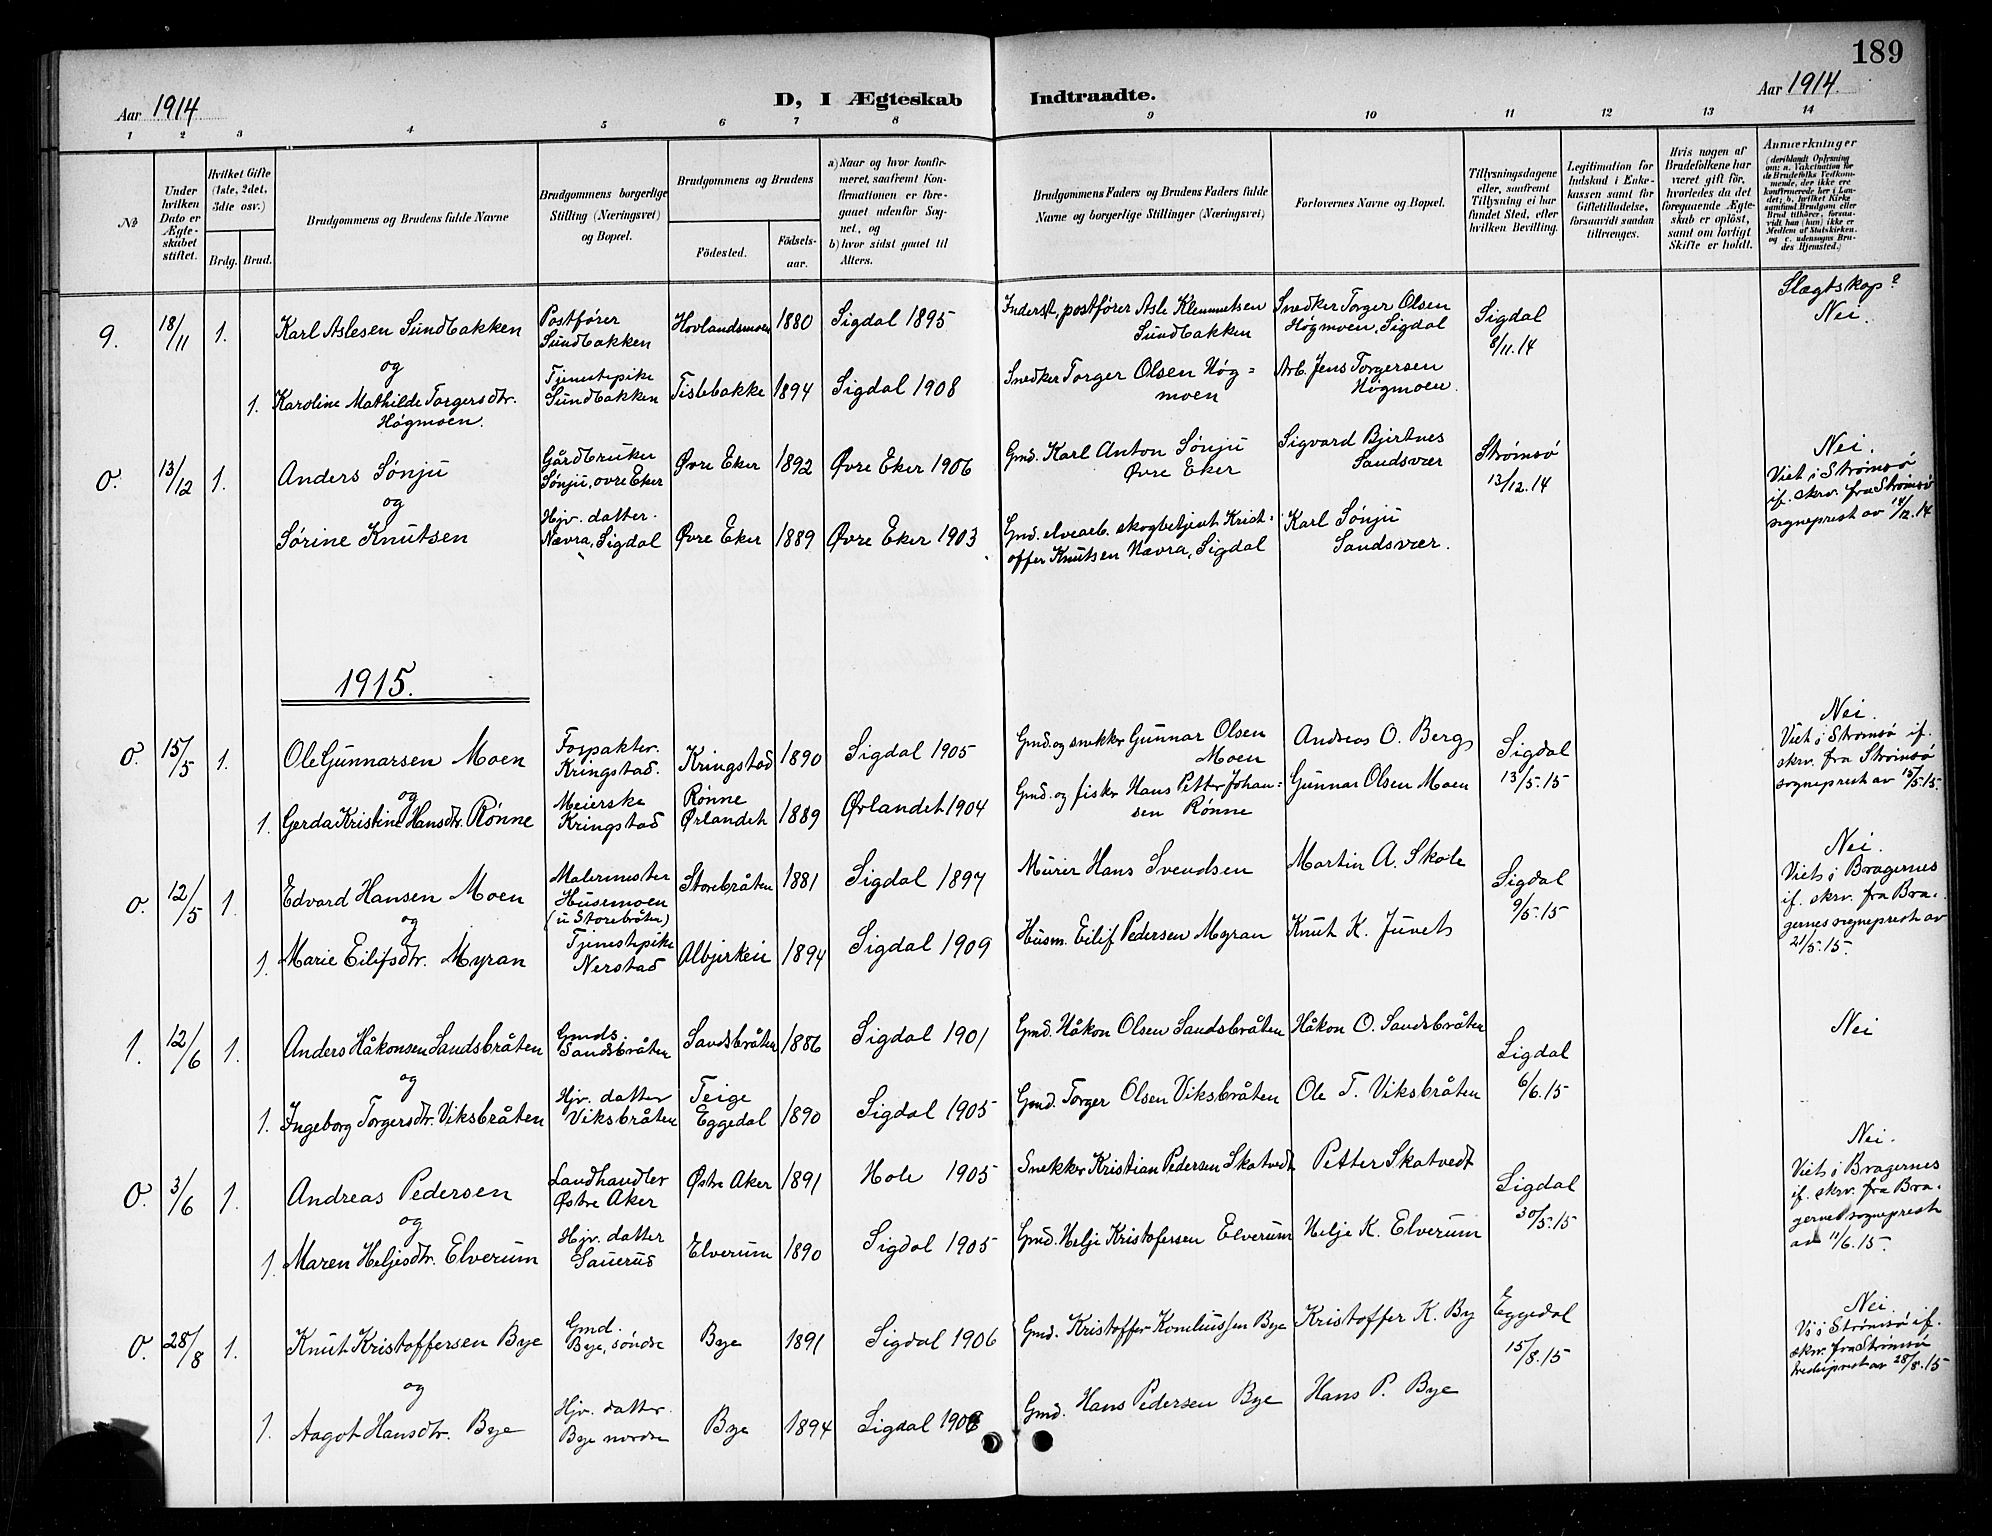 189
Aar 1914.
D, I Ægteskab Indtraadte.
Aar 1914.
1 2 3 4 5 6 7 8 9 10 11 12 13 14
No
Under hvilken Dato er Ægteskabet stiftet.
Hvilket Gifte (1ste, 2det, 3die osv.)
Brdg. Brud.
Brudgommens og Brudens fulde Navne
Brudgommens borgerlige Stilling (Næringsvei) og Bopæl.
Brudgommens og Brudens
Fødested.
Fødselsaar.
a) Naar og hvor konfirmeret, saafremt Konfirmationen er foregaaet udenfor Sognet, og
b) hvor sidst gaaet til Alters.
Brudgommens Faders og Brudens Faders fulde Navne og borgerlige Stillinger (Næringsvei)
Forlovernes Navne og Bopæl.
Tillysningsdagene eller, saafremt Tillysning ei har fundet Sted, efter hvilken Bevilling.
Legitimation for Indskud i Enkekassen samt for Giftetilladelse, forsaavidt saadan tiltrænges.
Hvis nogen af Brudefolkene har været gift før, hvorledes da det foregaaende Ægteskab er opløst, samt om lovligt Skifte er holdt.
Anmærkninger
(deriblandt Oplysning om: a. Vakcination for de Brudefolks Vedkommende, der ikke ere konfirmerede her i Landet; b. hvilket Kirkesamfund Brudgom eller Brud tilhører, forsavidt han (hun) ikke er Medlem af Statskirken, og c. udensogns Brudes Hjemsted.)
Slægtskap?
9. 18/11 1. Karl Aslesen Sundbakken Postfører Sundbakken Hovlandsmoen 1880 Sigdal 1895 Inderst, postfører Asle Klemmetsen Sundbakken Snedker Torger Olsen Høgmoen, Sigdal Sigdal 8/11.14 Nei.
og
1. Karoline Mathilde Torgersdtr. Høgmoen. Tjenestepike Sundbakken Tislebakke 1894 Sigdal 1908 Snedker Torger Olsen Høgmoen Arb. Jens Torgersen Høgmoen.
0. 13/12 1. Anders Sønju Gårdbruker Sønju, øvre Eker Øvre Eker 1892 Øvre Eker 1906 Gmd. Karl Anton Sønju Øvre Eker Sigvard Bjertnes Sandsvær Strømsø 13/12.14 Nei. Viet i Strømsø if. skrv. fra Strømsø sogneprest av 14/12.14
og
Sørine Knutsen Hjv. datter. Nævra, Sigdal Øvre Eker 1889 Øvre Eker 1903 Gmd. elvearb. skogbetjent Kristoffer Knutsen Nævra, Sigdal Karl Sønju Sandsvær.
1915.
0. 15/5 1. Ole Gunnarsen Moen Forpakter. Kringstad. Kringstad 1890 Sigdal 1905 Gmd. og snekker Gunnar Olsen Moen Andreas O. Berg Sigdal 13/5.15 Nei. Viet i Strømsø if. skrv. fra Strømsø sogneprest av 15/5.15.
og
1. Gerda Kristine Hansdtr. Rønne Meierske Kringstad Rønne Ørlandet 1889 Ørlandet 1904 Gmd. og fisker Hans Petter Johansen Rønne Gunnar Olsen Moen
0. 12/5 1. Edvard Hansen Moen Malermester Husemoen (u. Storebråten) Storebråten 1881 Sigdal 1897 Murer Hans Svendsen Martin A. Skole Sigdal 9/5.15 Nei. Viet i Bragernes if. skrv. fra Bragernes sogneprest av 21/5.15.
og
1. Marie Eilifsdtr. Myran Tjenestepike Nerstad Albjerkeie 1894 Sigdal 1909 Husm. Eilif Pedersen Myran Knut K. Juvet
1. 12/6 1. Anders Håkonsen Sandsbråten Gmds. Sandsbråten Sandsbråten 1886 Sigdal 1901 Gmd. Håkon Olsen Sandsbråten Håkon O. Sandsbråten Sigdal 6/6.15 Nei
og
1. Ingeborg Torgersdtr. Viksbråten Hjv. datter Viksbråten Teige Eggedal 1890 Sigdal 1905 Gmd. Torger Olsen Viksbråten Ole T. Viksbråten
0. 3/6 1. Andreas Pedersen Landhandler Østre Aker Østre Aker 1891 Hole 1905 Snekker Kristian Pedersen Skatvedt Petter Skatvedt Sigdal 30/5.15 Nei. Viet i Bragernes if. skrv. fra Bragernes sogneprest av 11/6.15.
og
1. Maren Heljesdtr. Elverum Hjv. datter Elverum 1890 Sigdal 1905 Gmd. Helje Kristofersen Elverum Helje K. Elverum
0. 28/8 1. Knut Kristoffersen Bye Gmd. Bye, søndre Bye 1891 Sigdal 1906 Gmd. Kristoffer Korneliussen Bye Kristoffer K. By Eggedal 15/8.15 Nei. V. i Strømsø if. skrv. fra Strømsø av 28/8.15
og
1. Aagot Hansdtr. Bye Hjv. datter. Bye nordre Bye 1894 Sigdal Gmd. Hans Pedersen Bye Hans P. Bye